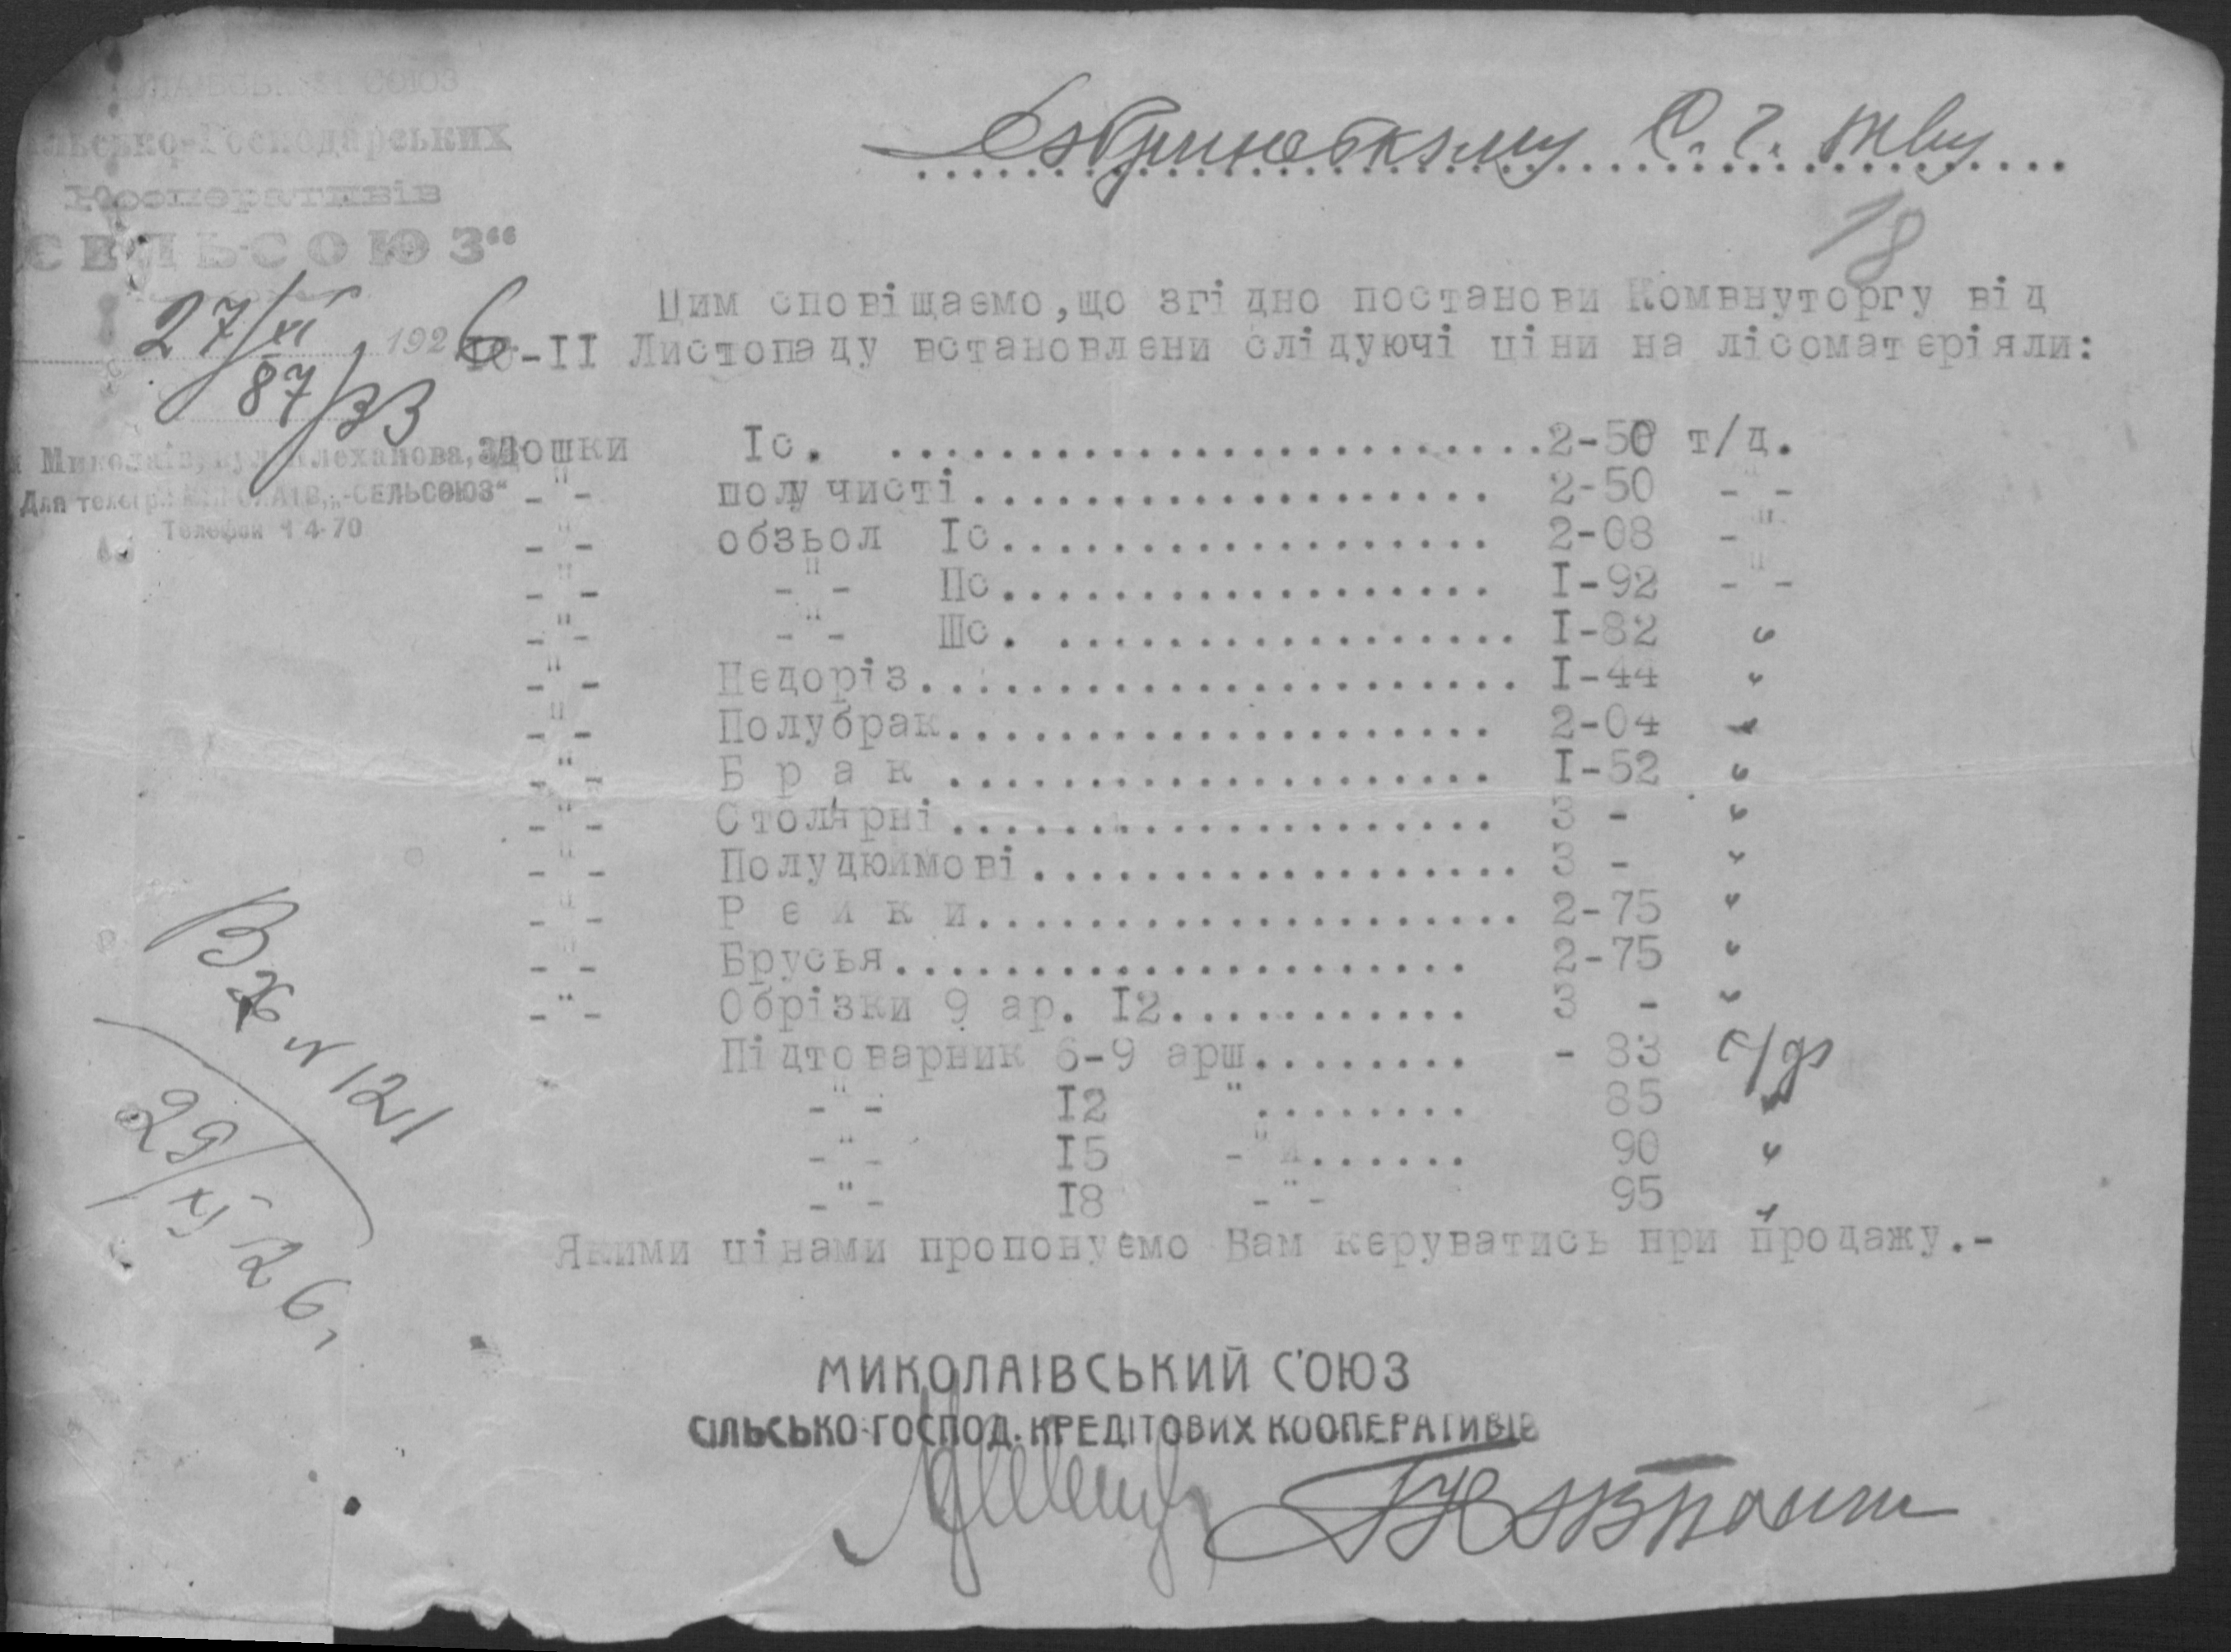 СОЮЗ
Сільсько-Господарських
Кооперативів
СЕЛЬСОЮЗ“
27/XI 1926
87/33
м Миколаїв, вул. Плеханова,
Для телегр.: МИКОЛАЇВ, „СЕЛЬСОЮЗ“
Телефон 4-70
С. г. тву
18
Цим сповіщаємо,що згідно постанови Комвнуторгу від
10-II Листопаду встановлени слідуючі ціни на лісоматеріяли:
Дошки Iс. ........................2-50 т/д.
-"- получисті................... 2-50 -"-
-"- обзьол Iс.................. 2-08 -"
-"- -"- Пс.................. I-92 -"-
-"- -"- Шс. ................. I-82 "
-"- Недоріз...................... I-44 "
-"- Полубрак.................... 2-04 "
-"- Б р а к .................... I-52 "
-"- Столярні.................... 3 - "
-"- Полудюймові.................. 3 - "
-"- Р е й к и.................... 2-75 "
-"- Брусья..................... 2-75 "
-"- Обрізки 9 ар. I2........... 3 - "
Підтоварник 6-9 арш........ - 83 с/д
-"- I2 "........ 85 "
-"- I5 -"-...... 90 "
-"- I8 -"- 95 "
Якими цінами пропонуємо Вам керуватись при продажу.-
Вх № 121
29/XI 26,
МИКОЛАІВСЬКИЙ С'ОЮЗ
СІЛЬСЬКО-ГОСПОД. КРЕДІТОВИХ КООПЕРАТИВІВ